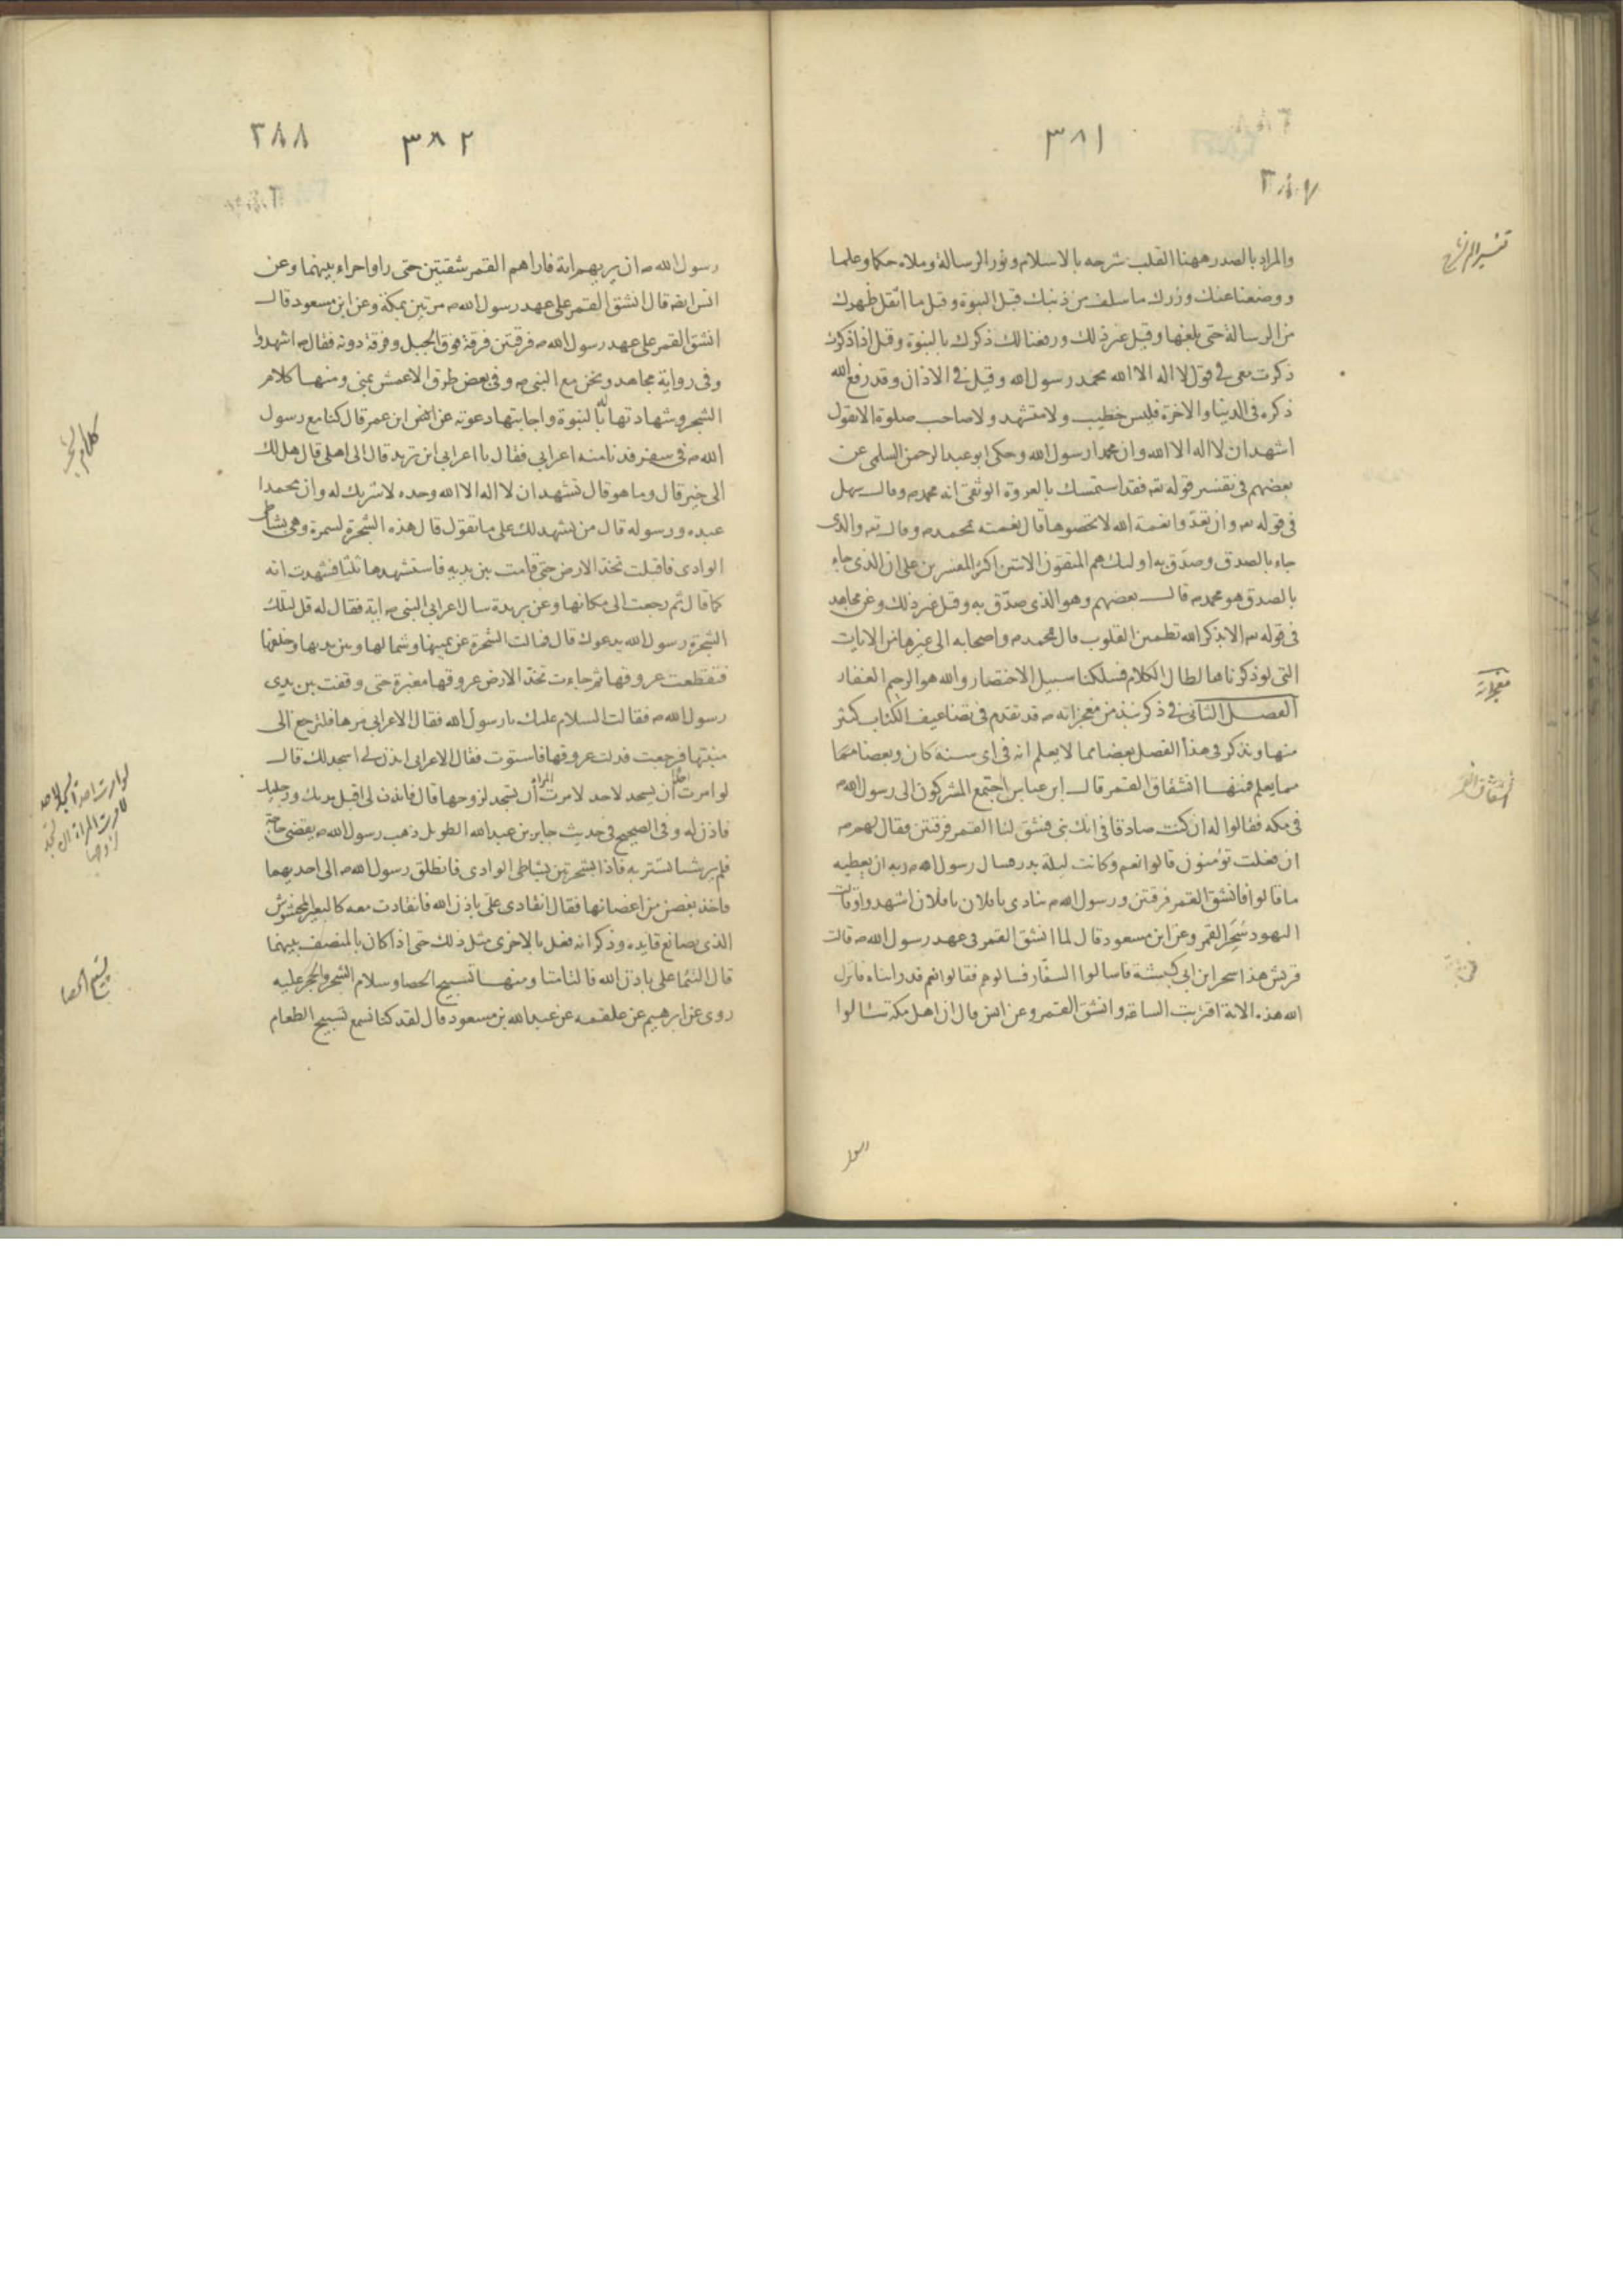 ٣٨١
٣٨٧
تفسير الم نشرح
والمراد بالصدر ههنا القلب شرحه بالاسلام ونور الرسالة وملاه حكما وعلما
ووضعنا عنك وزرك ما سلف من ذنبك قبل النبوة وقيل ما اثقل ظهرك
من الرسالة حتى بلغها وقيل غير ذلك ورفعنا لك ذكرك بالنبوة وقيل اذا ذكرت
ذكرت معى فى قول لا اله الا الله محمد رسول الله وقيل فى الاذان وقد رفع الله
ذكره فى الدينا والاخرة فليس خطيب ولا متشهد ولا صاحب صلوة الا يقول
اشهد ان لا اله الا الله وان محمدا رسول الله وحكى ابو عبد الرحمن السلمى عن
بعضهم فى تفسير قوله تعه فقد استمسك بالعروة الوثقى انه محمد م وقال سهل
فى قوله تعه وان تعدوا نعمة الله لا تحصوها قال نعمته محمد م وقال تعه والذى
جاء بالصدق وصدق به اولئك هم المتقون الايتين اكثر المفسرين على ان الذى جاء
بالصدق هو محمد م قال بعضهم وهو الذى صدق به وقيل غير ذلك وعن مجاهد
فى قوله تعه الا بذكر الله تطمئن القلوب قال محمد م واصحابه الى غيرها من الايات
التى لو ذكرناها لطال الكلام فسلكنا سبيل الاختصار والله هو الرحيم الغفار
معجزاته
الفصل الثانى فى ذكر نبذ من معجزاته م قد تقدم فى تضاعيف الكتاب كثير
منها ونذكر فى هذا الفصل بعضا مما لا يعلم انه فى اى سنة كان وبعضا منها
انشقاق القمر
مما يعلم فمنها انشقاق القمر قال ابن عباس اجتمع المشركون الى رسول الله م
فى مكه فقالوا له ان كنت صادقا فى انك نبى فشق لنا القمر فرقتين فقال لهم م
ان فعلت تؤمنون قالوا نعم وكانت ليلة بدر فسال رسول الله م ربه ان يعطيه
ما قالوا فانشق القمر فرقتين ورسول الله م ينادى يا فلان يا فلان اشهدوا وقالت
اليهود سحر القمر وعن ابن مسعود قال لما انشق القمر فى عهد رسول الله م قالت
قريش هذا سحر ابن ابى كبشة فاسالوا السفار فسالوهم فقالوا نعم قد رايناه فانزل
الله هذه الاية اقتربت الساعة وانشق القمر وعن انس قال ان اهل مكة سالوا
رسول
٣٨٢
٣٨٨
رسول الله م ان يريهم اية فاراهم القمر شقتين حتى راوا حراء بينهما وعن
انس ايضه قال انشق القمر على عهد رسول الله م مرتين بمكة وعن ابن مسعود قال
انشق القمر على عهد رسول الله م فرقتين فرقة فوق الجبل وفرقة دونه فقال م اشهدوا
وفى رواية مجاهد ونحن مع النبى م وفى بعض طرق الاعمش بمنى ومنها كلام
كلام الشجر
الشجر وشهادتها له بالنبوة واجابتها دعوته عن ابن عمر قال كنا مع رسول
الله م فى سفر فدنا منه اعرابى فقال يا اعرابى اين تريد قال الى اهلى قال هل لك
الى خير قال وما هو قال تشهد ان لا اله الا الله وحده لا شريك له وان محمدا
عبده ورسوله قال من يشهد لك على ما تقول قال هذه الشجرة السمرة وهى بشاطى
الوادى فاقبلت تخد الارض حتى قامت بين يديه فاستشهدها ثلثا فشهدت انه
كما قال ثم رجعت الى مكانها وعن بريدة سال اعرابى النبى م اية فقال له قل لتلك
الشجرة رسول الله يدعوك قال فمالت الشجرة عن يمينها وشمالها وبين يديها وخلفها
فتقطعت عروقها ثم جاءت تخد الارض عروقها مغبرة حتى وقفت بين يدى
رسول الله م فقالت السلام عليك يا رسول الله فقال الاعرابى مرها فلترجع الى
منبتها فرجعت فدلت عروقها فاستوت فقال الاعرابى ايذن لى اسجد لك قال
لو امرت احدا ان يسجد لاحد لامرت المراة ان تسجد لزوجها قال فاذن لى اقبل يديك ورجليك
فاذن له وفى الصحيح فى حديث جابر بن عبد الله الطويل ذهب رسول الله م يقضى حاجته
فلم ير شيا يستتر به فاذا بشجرتين بشاطى الوادى فانطلق رسول الله م الى احديهما
فاخذ بغصن من اغصانها فقال انقادى على باذن الله فانقادت معه كالبعير المخشوش
الذى يصانع قايده وذكر انه فعل بالاخرى مثل ذلك حتى اذا كان بالمنصف بينهما
قال التئما على باذن الله فالتامتا ومنها تسبيح الحصا وسلام الشجر والحجر عليه
تسبيح الحصا
روى عن ابرهيم عن علقمه عن عبد الله بن مسعود قال لقد كنا نسمع تسبيح الطعام